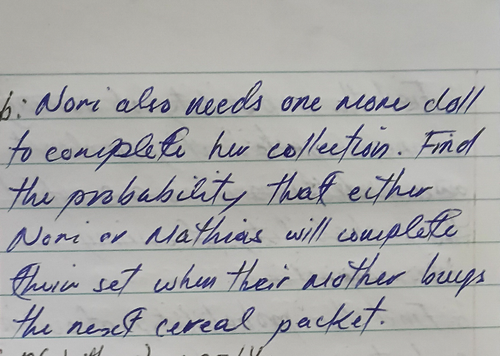 b: Nomi also needs one more doll
to complete her collection. Find
the probability that either
Nomi or Mathias will complete
their set when their mother buys
the next cereal packet.